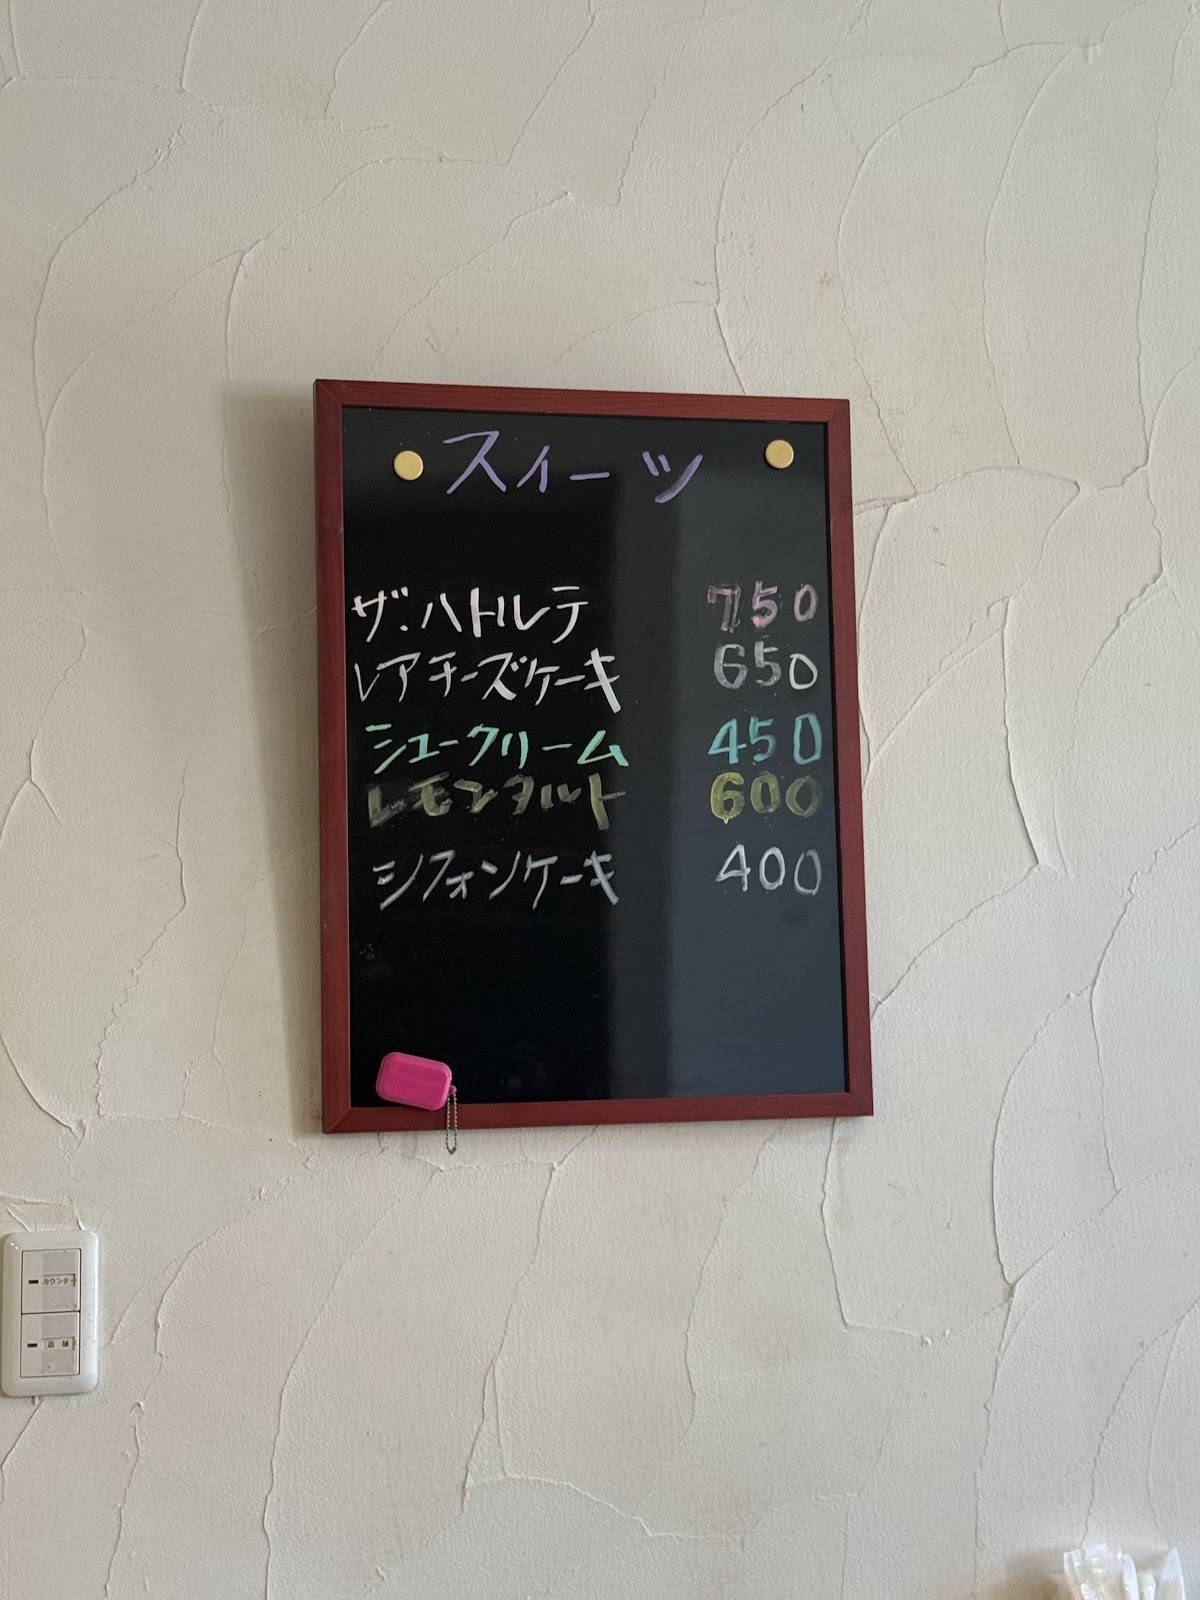 スィーツ
ザ・ハトルテ 750
レアチーズケーキ 650
シュークリーム 450
レモンタルト 600
シフォンケーキ 400
カウンター
店舗